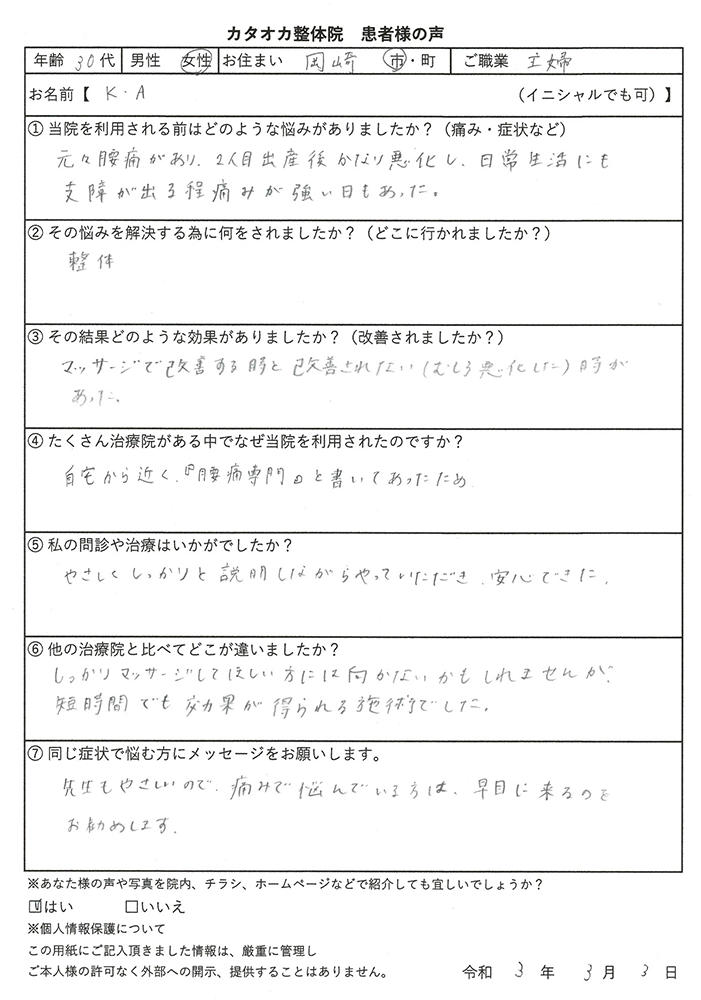 カタオカ整体院　患者様の声
年齢 30代 男性 女性 お住まい 岡崎 市・町 ご職業 主婦
お名前【 K・A （イニシャルでも可）】
① 当院を利用される前はどのような悩みがありましたか？（痛み・症状など）
元々腰痛があり、2人目出産後かなり悪化し、日常生活にも
支障が出る程痛みが強い日もあった。
② その悩みを解決する為に何をされましたか？（どこに行かれましたか？）
整体
③ その結果どのような効果がありましたか？（改善されましたか？）
マッサージで改善する時と改善されない（むしろ悪化した）時が
あった。
④ たくさん治療院がある中でなぜ当院を利用されたのですか？
自宅から近く、『腰痛専門』と書いてあったため
⑤ 私の問診や治療はいかがでしたか？
やさしくしっかりと説明しながらやっていただき、安心できた。
⑥ 他の治療院と比べてどこが違いましたか？
しっかりマッサージしてほしい方には向かないかもしれませんが、
短時間でも効果が得られる施術でした。
⑦ 同じ症状で悩む方にメッセージをお願いします。
先生もやさしいので、痛みで悩んでいる方は、早目に来るのを
お勧めします。
※あなた様の声や写真を院内、チラシ、ホームページなどで紹介しても宜しいでしょうか？
☑はい　□いいえ
※個人情報保護について
この用紙にご記入頂きました情報は、厳重に管理し
ご本人様の許可なく外部への開示、提供することはありません。 令和 3 年 3 月 3 日